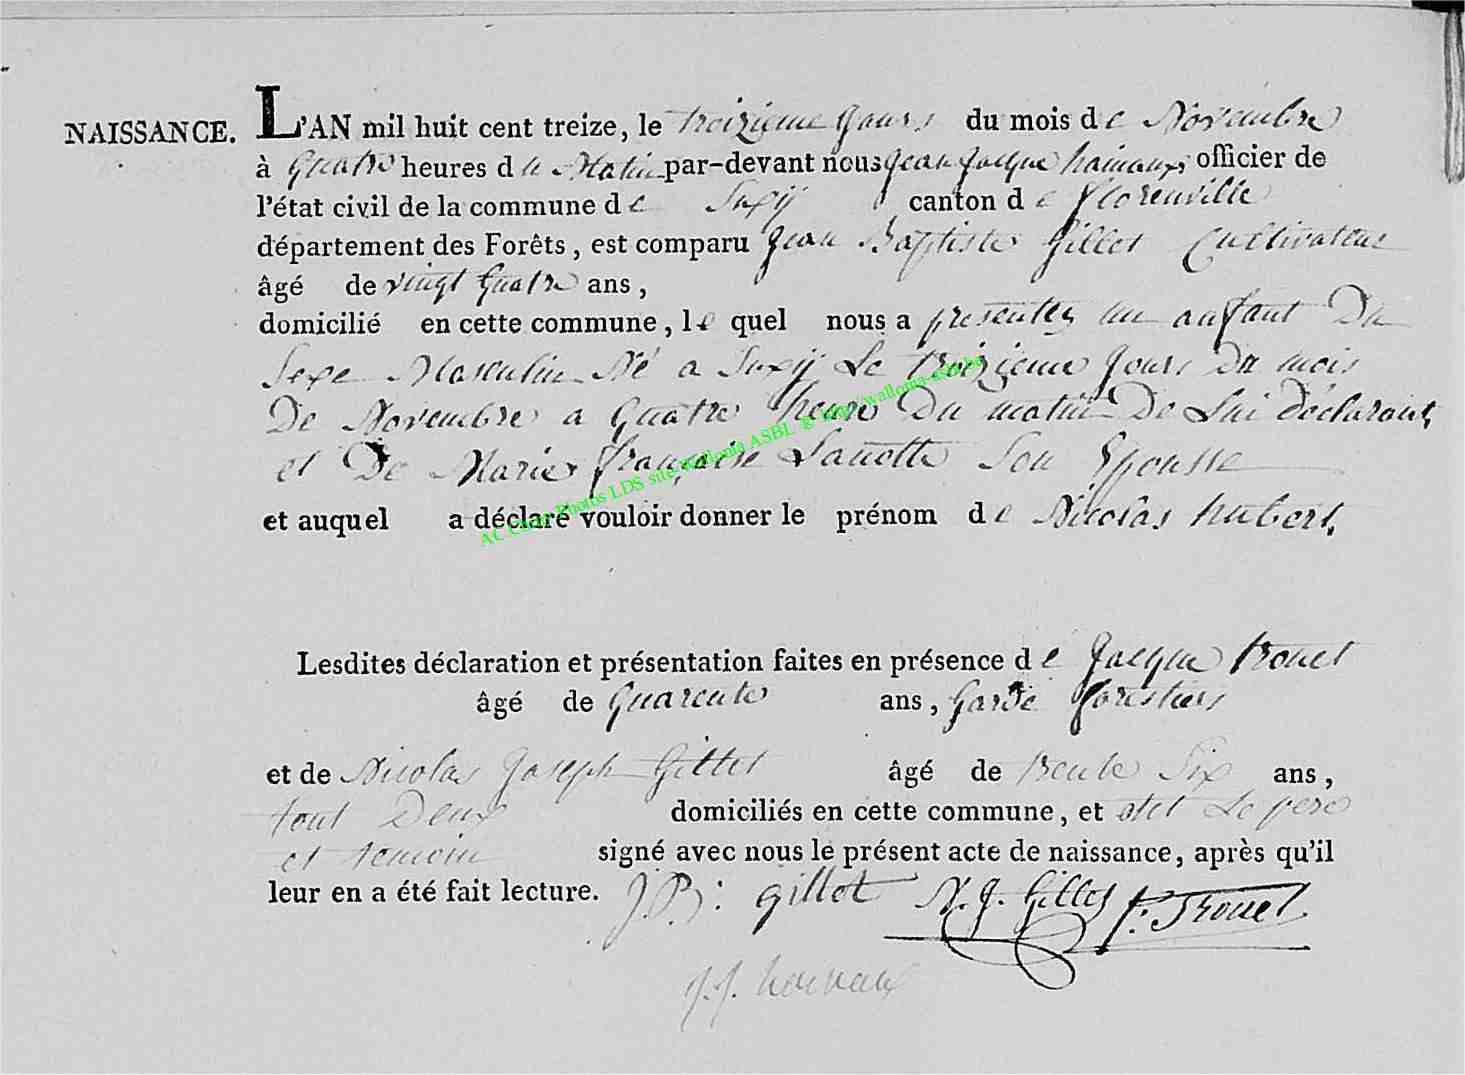 NAISSANCE. L'AN mil huit cent treize, le treizieme jours du mois de Novembre
à Quatre heures du Matin par-devant nous jean jacque hainaux officier de
l'état civil de la commune de Suxÿ canton de florenville
département des Forêts, est comparu jean Baptiste Gillet Cultivateur
âgé de vingt Quatre ans,
domicilié en cette commune, le quel nous a presentez un anfant Du
Sexe Masculin Né a Suxÿ Le treizieme jours Du mois
De Novembre a Quatre heure Du matin De Lui déclarant,
et De Marie françoise Lanotte Son Epousse
et auquel a déclaré vouloir donner le prénom de Nicolas hubert,
Lesdites déclaration et présentation faites en présence de jacque trouet
âgé de Quarente ans, Garde forestiers
et de Nicolas joseph Gillet âgé de trente Six ans,
tout Deux domiciliés en cette commune, et Le pere
et temoin signé avec nous le présent acte de naissance, après qu'il
leur en a été fait lecture. J. B: gillet N. J. Gillet Trouet
j. j.